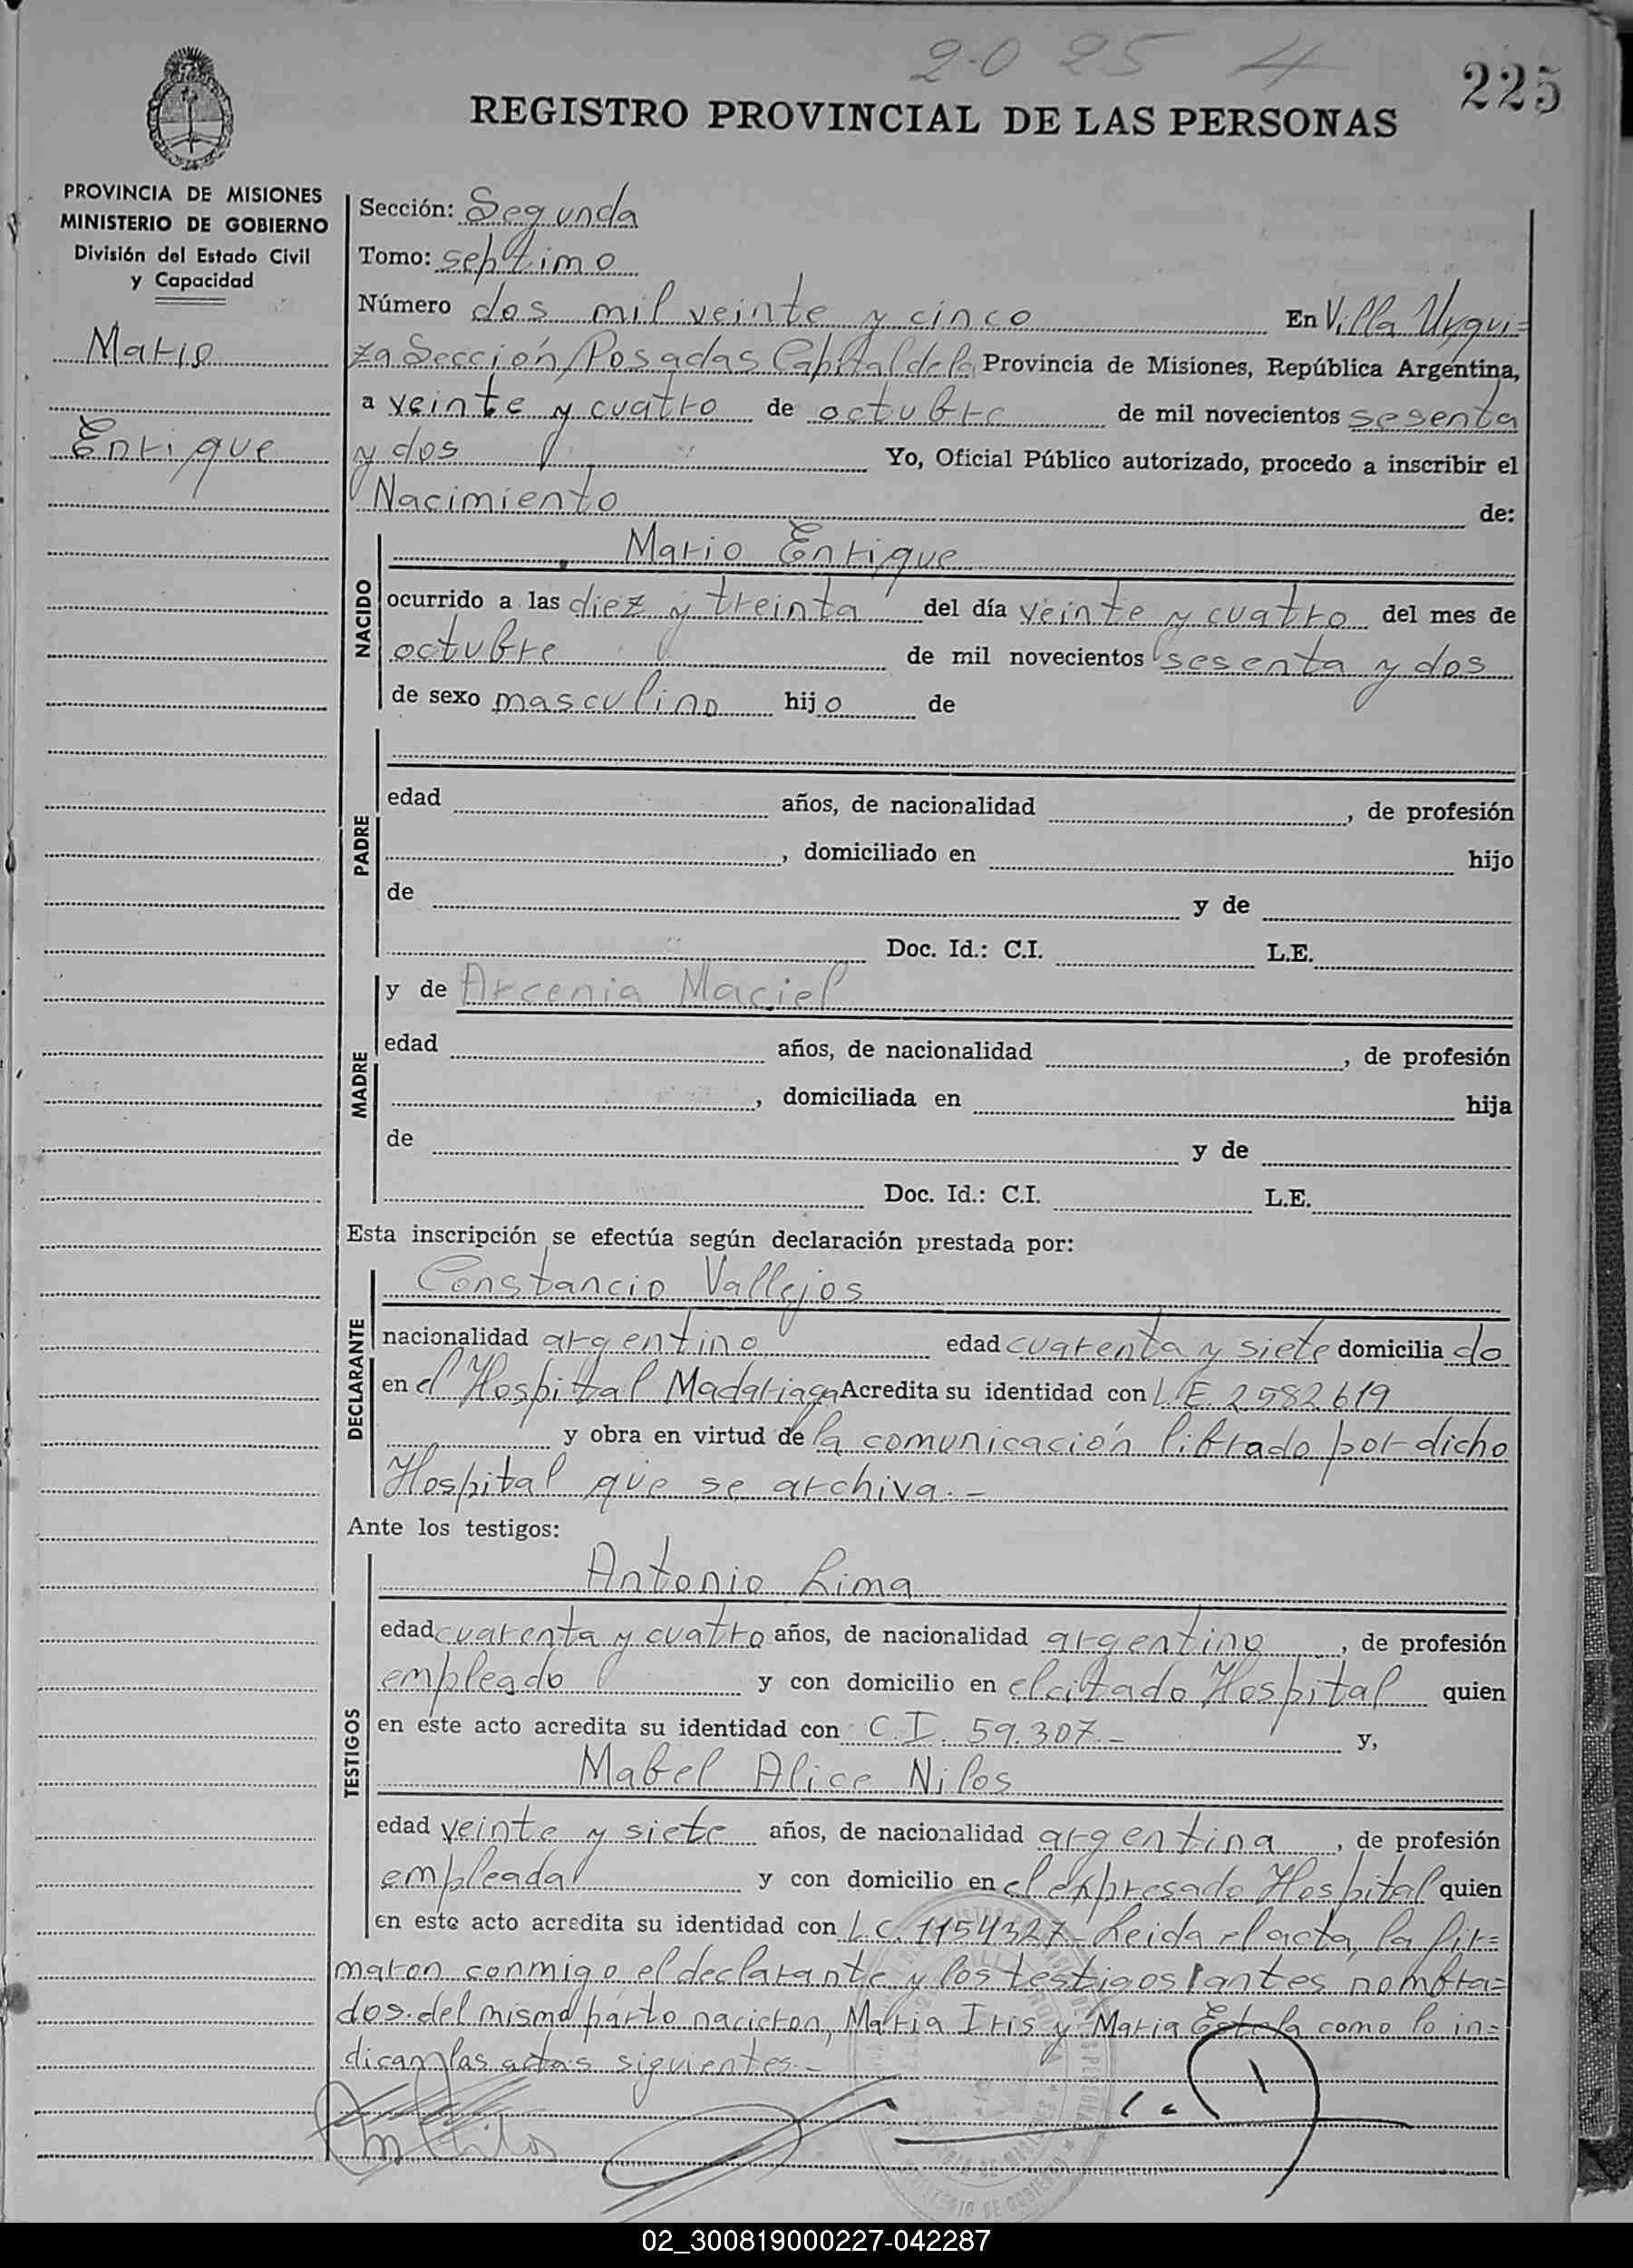 2025 4
225
REGISTRO PROVINCIAL DE LAS PERSONAS
PROVINCIA DE MISIONES
MINISTERIO DE GOBIERNO
División del Estado Civil
y Capacidad
Mario
Enrique
Sección: Segunda
Tomo: septimo
Número dos mil veinte y cinco En Villa Urqui=
za Sección, Posadas Capital de la Provincia de Misiones, República Argentina,
a veinte y cuatro de octubre de mil novecientos sesenta
y dos Yo, Oficial Público autorizado, procedo a inscribir el
Nacimiento de:
NACIDO
Mario Enrique
ocurrido a las diez y treinta del día veinte y cuatro del mes de
octubre de mil novecientos sesenta y dos
de sexo masculino hijo de
PADRE
edad años, de nacionalidad , de profesión
, domiciliado en hijo
de y de
Doc. Id.: C.I. L.E.
MADRE
y de Arcenia Maciel
edad años, de nacionalidad , de profesión
, domiciliada en hija
de y de
Doc. Id.: C.I. L.E.
Esta inscripción se efectúa según declaración prestada por:
DECLARANTE
Constancio Vallejos
nacionalidad argentino edad cuarenta y siete domiciliado
en el Hospital Madariaga Acredita su identidad con L.E. 2582619
y obra en virtud de la comunicación librado por dicho
Hospital que se archiva.-
Ante los testigos:
TESTIGOS
Antonio Lima
edad cuarenta y cuatro años, de nacionalidad argentino, de profesión
empleado y con domicilio en el citado Hospital quien
en este acto acredita su identidad con C.I. 59.307.- y,
Mabel Alice Nilos
edad veinte y siete años, de nacionalidad argentina, de profesión
empleada y con domicilio en el expresado Hospital quien
en este acto acredita su identidad con L.C. 1154327- Leida el acta, la fir=
maron conmigo el declarante y los testigos antes nombra=
dos. del mismo parto nacieron, Maria Iris y Maria Estela como lo in=
dican las actas siguientes.-
02_300819000227-042287